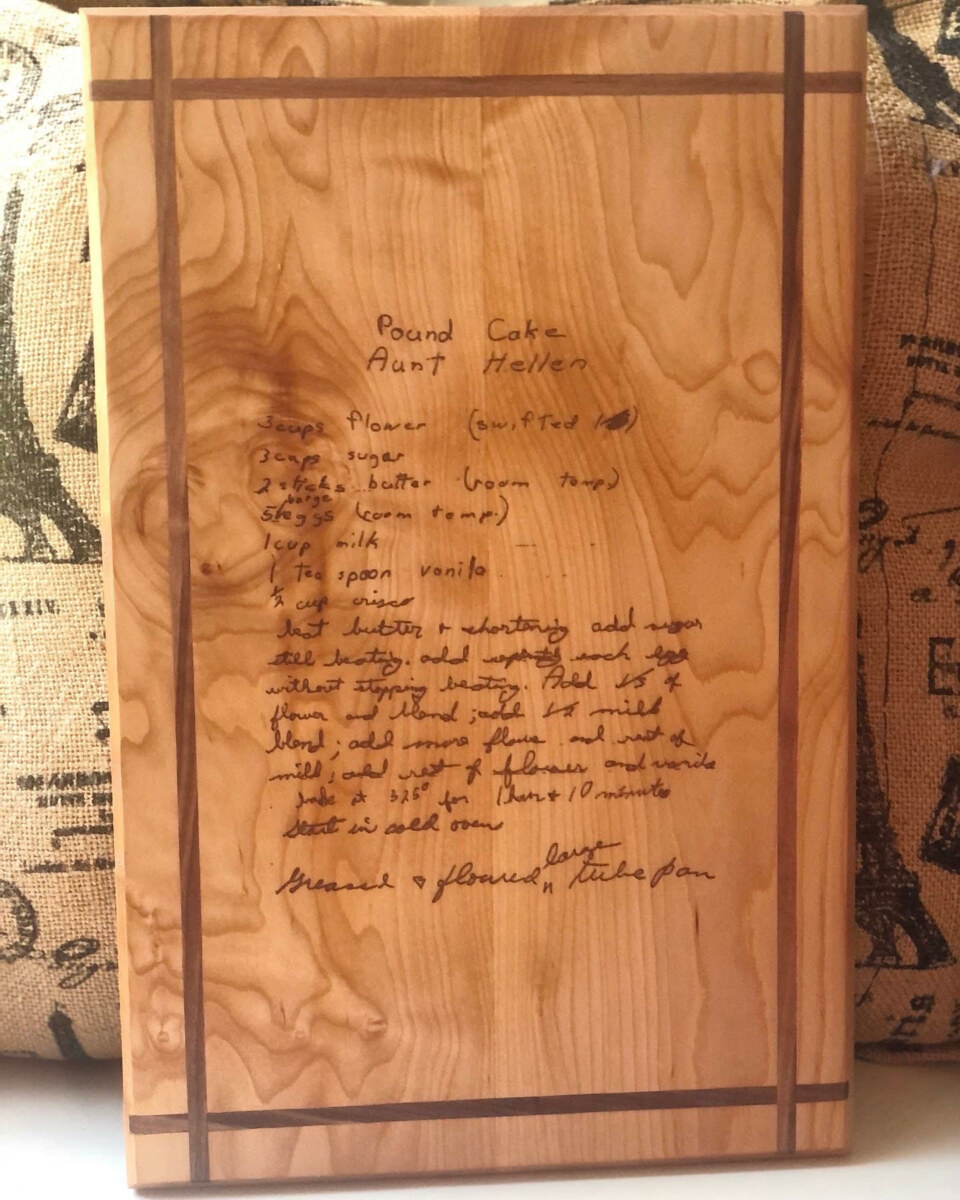 Pound Cake
Aunt Hellen
3 cups flower (swifted
3 cups sugar
2 sticks butter (room temp.)
large
5 eggs (room temp.)
1 cup milk
1 tea spoon vanila
1/2 cup crisco
beat butter + shortening add sugar
still beating. add each egg
without stopping beating. Add 1/3 of
flower and blend ; add 1/2 milk
blend ; add more flour and rest of
milk ; add rest of flower and vanila
bake at 325° for 1 hour + 10 minutes
Start in cold oven
large
Greased & floured tube pan